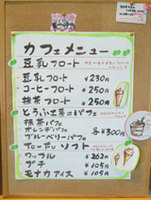 カフェメニュー
豆乳フロート
豆乳フロート ￥250円
コーヒーフロート ￥250円
抹茶フロート ￥250円
とうふ工房のパフェ
抹茶パフェ
オレンジパフェ
ブルーベリーパフェ
各￥300円
ソフト
ワッフル ￥262円
プチ ￥105円
モナカアイス ￥105円